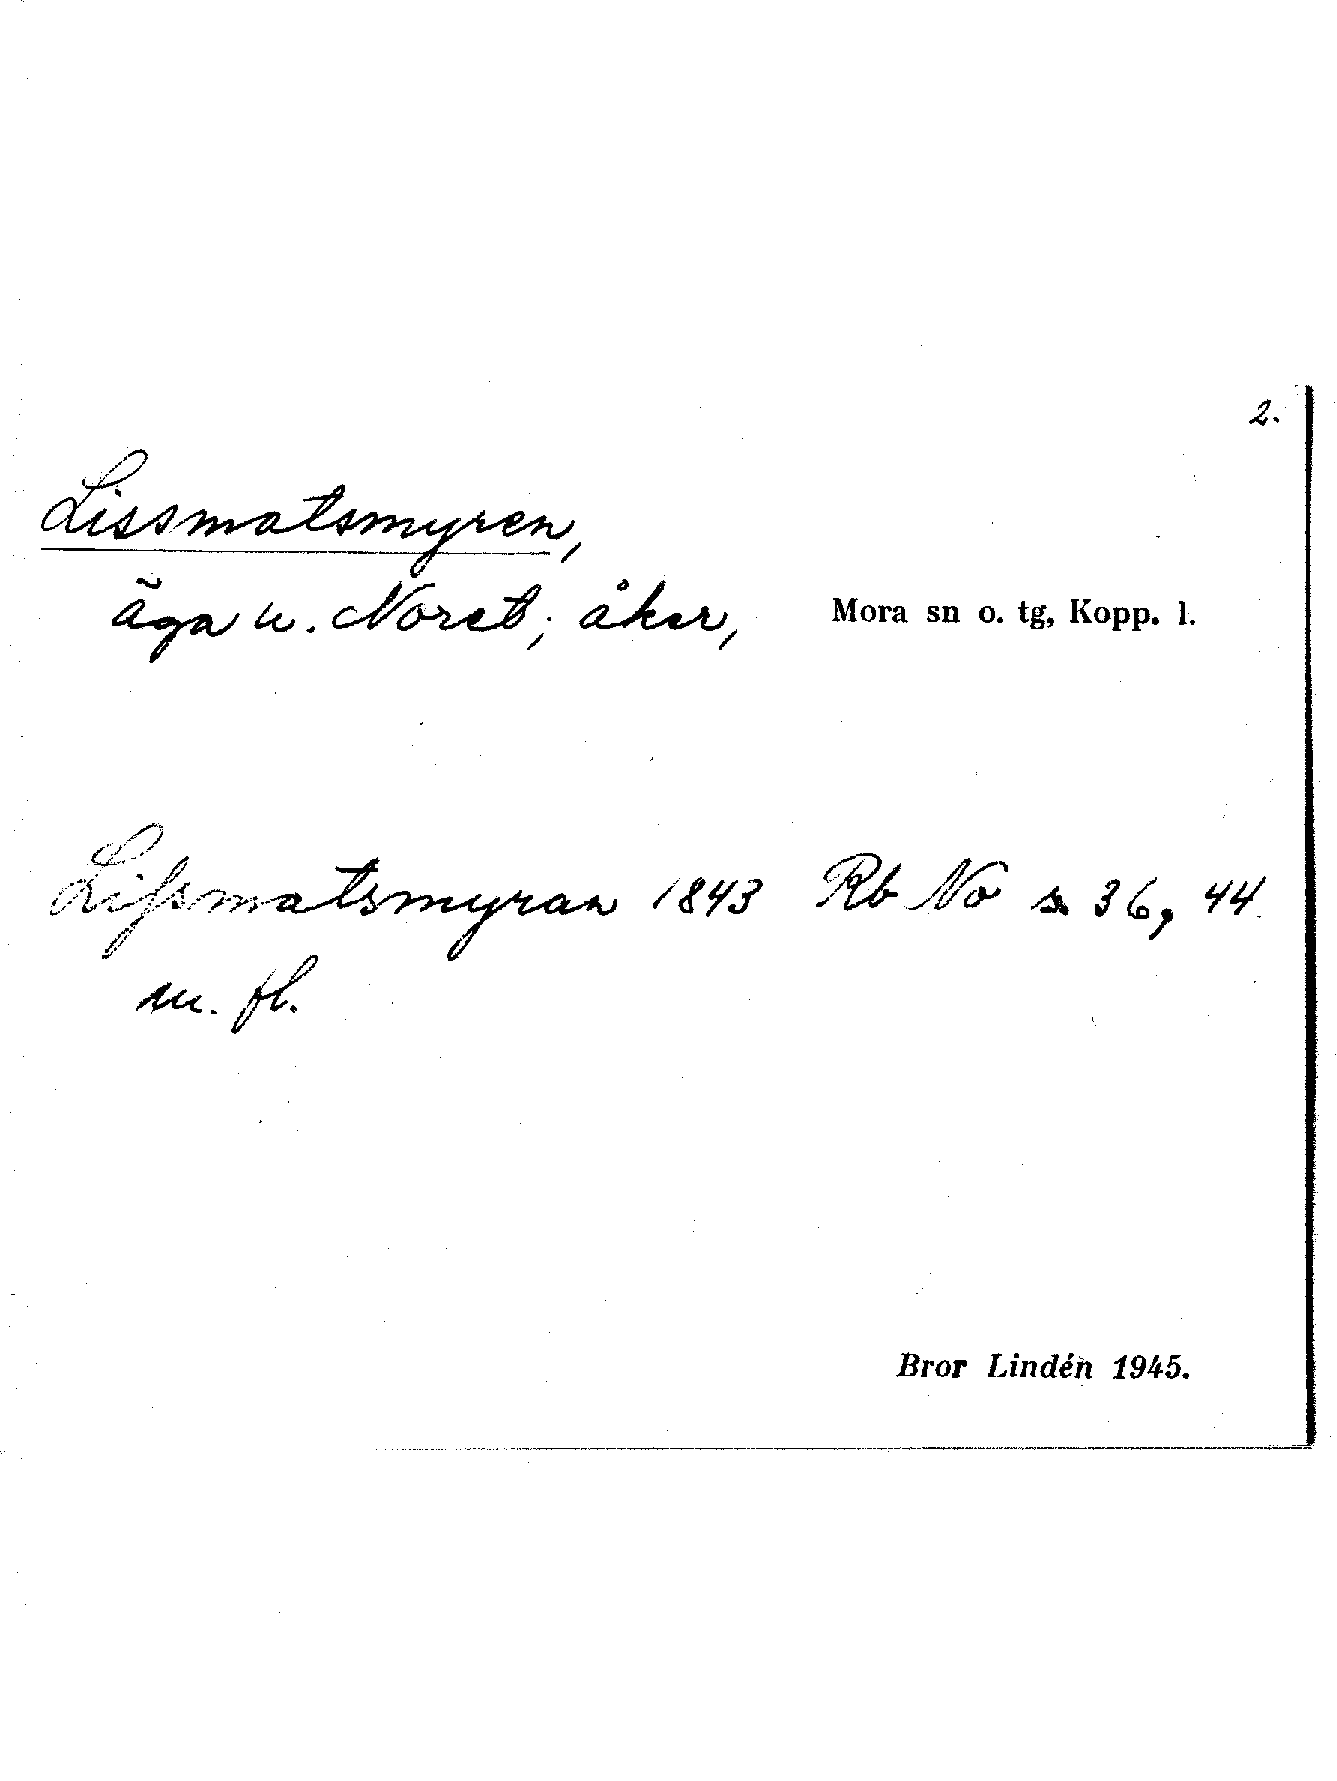 2.
Lissmatsmyren,
äga u. Noret; åker, Mora sn o. tg, Kopp. l.
Lifsmatsmyran 1843 Rb No s. 36, 44
m. fl.
Bror Lindén 1945.